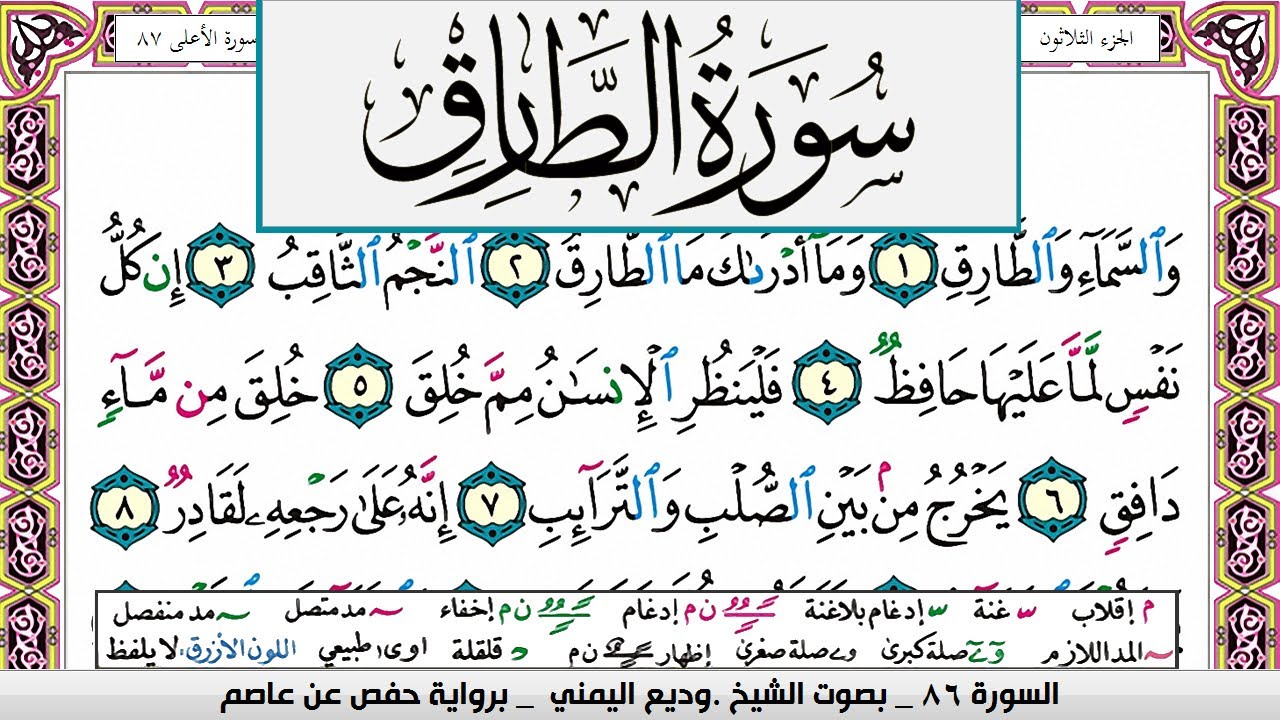 الجزء الثلاثون
سورة الأعلى ٨٧
سُورَةُ الطَّارِقِ
وَٱلسَّمَآءِ وَٱلطَّارِقِ ١ وَمَآ أَدْرَىٰكَ مَا ٱلطَّارِقُ ٢ ٱلنَّجْمُ ٱلثَّاقِبُ ٣ إِن كُلُّ
نَفْسٍ لَّمَّا عَلَيْهَا حَافِظٌ ٤ فَلْيَنظُرِ ٱلْإِنسَٰنُ مِمَّ خُلِقَ ٥ خُلِقَ مِن مَّآءٍ
دَافِقٍ ٦ يَخْرُجُ مِنۢ بَيْنِ ٱلصُّلْبِ وَٱلتَّرَآئِبِ ٧ إِنَّهُۥ عَلَىٰ رَجْعِهِۦ لَقَادِرٌ ٨
م إقلاب غنة إدغام بلاغنة ن م إدغام ن م إخفاء مد متصل مد منفصل
المد اللازم صلة كبرى صلة صغرى إظهار ن م قلقلة اوى طبيعي اللون الأزرق: لا يلفظ
السورة ٨٦ _ بصوت الشيخ .وديع اليمني _ برواية حفص عن عاصم